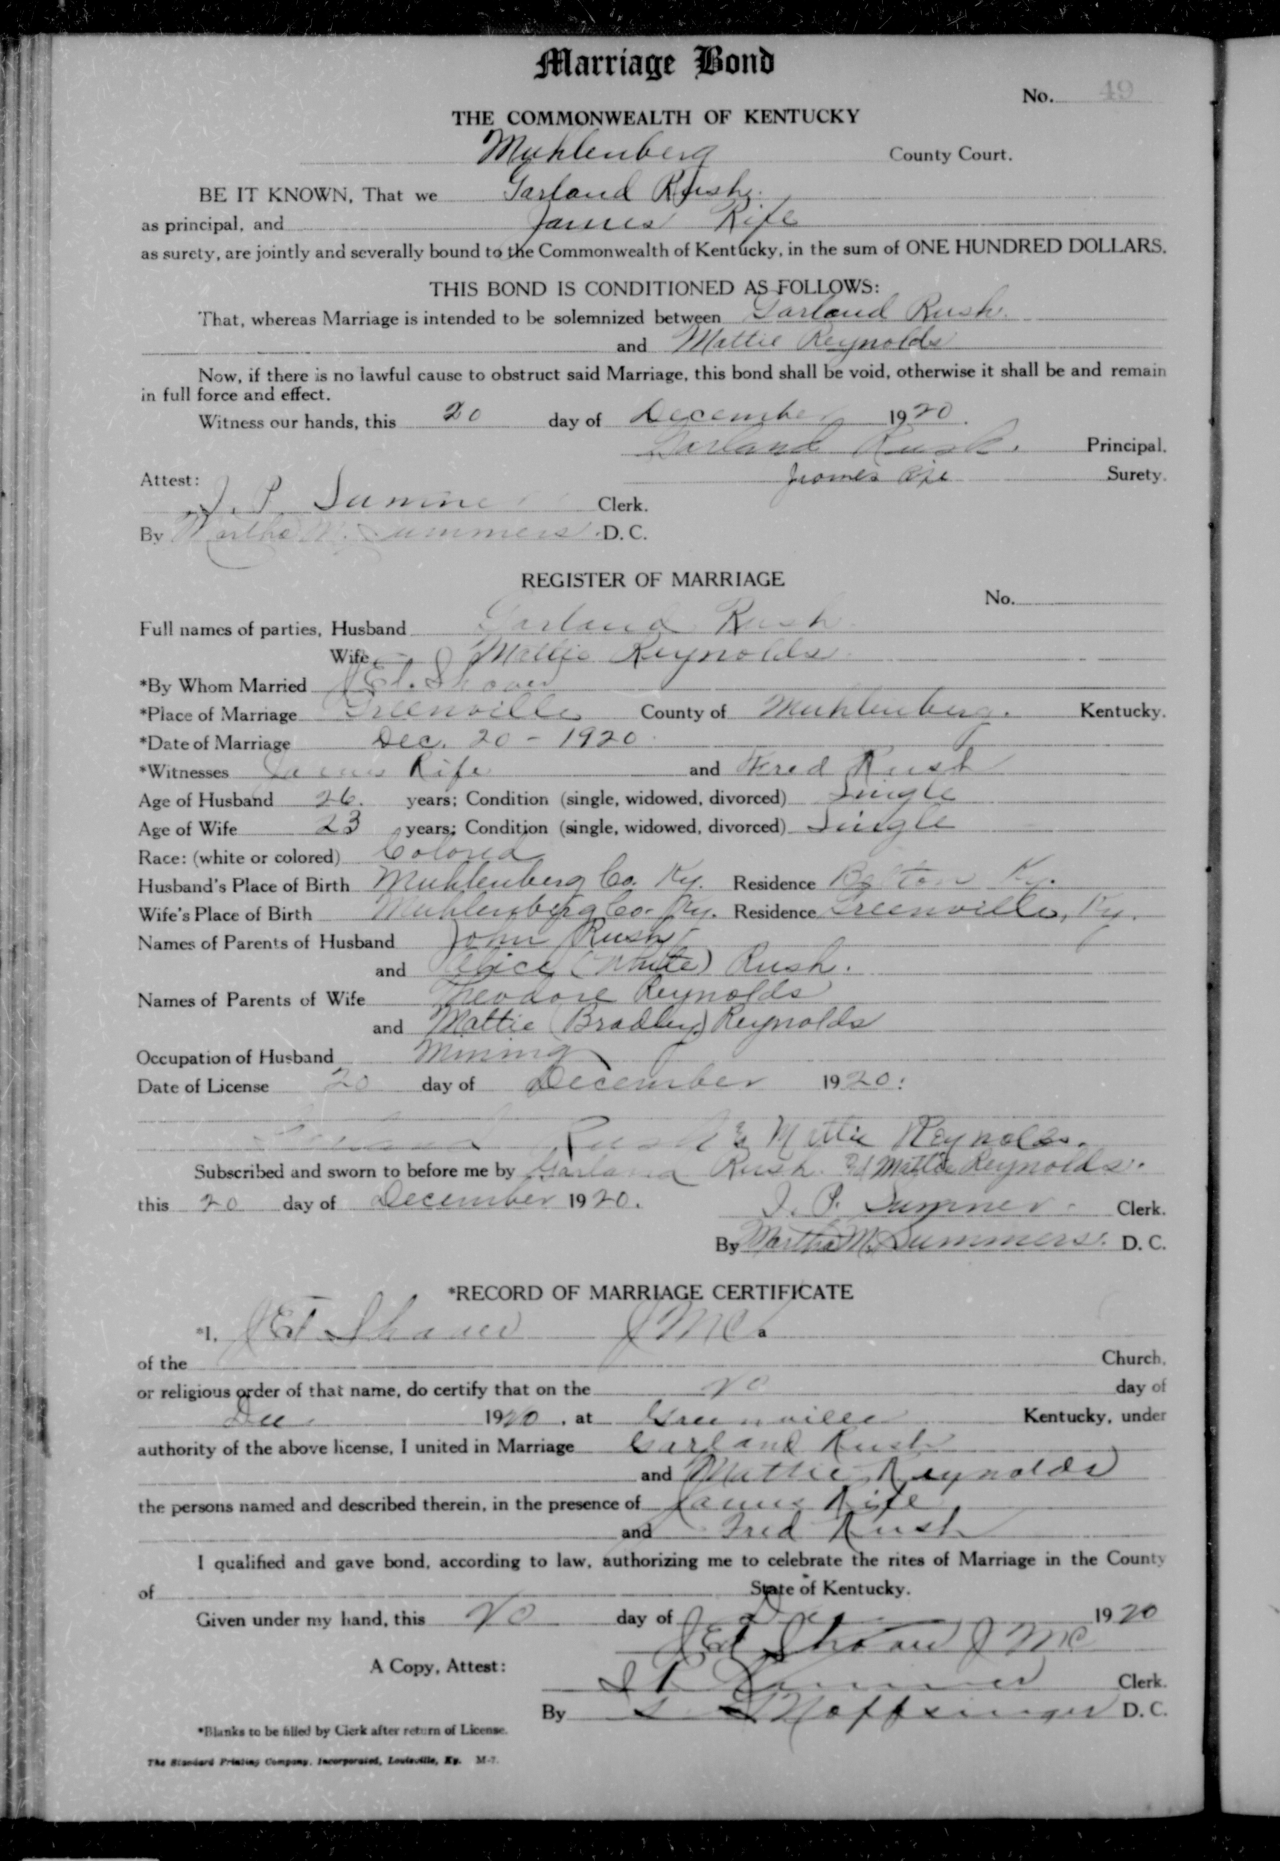 Marriage Bond
No. 49
THE COMMONWEALTH OF KENTUCKY
Muhlenberg County Court.
BE IT KNOWN, That we Garland Rush
as principal, and James Rife
as surety, are jointly and severally bound to the Commonwealth of Kentucky, in the sum of ONE HUNDRED DOLLARS.
THIS BOND IS CONDITIONED AS FOLLOWS:
That, whereas Marriage is intended to be solemnized between Garland Rush
and Mattie Reynolds
Now, if there is no lawful cause to obstruct said Marriage, this bond shall be void, otherwise it shall be and remain
in full force and effect.
Witness our hands, this 20 day of December 1920.
Garland Rush. Principal.
James Rife Surety.
Attest:
J. P. Sumner Clerk.
By Martha M. Summers. D. C.
REGISTER OF MARRIAGE
No.
Full names of parties, Husband Garland Rush
Wife Mattie Reynolds
*By Whom Married J Ed. Shaver
*Place of Marriage Greenville County of Muhlenberg. Kentucky.
*Date of Marriage Dec. 20 - 1920
*Witnesses James Rife and Fred Rush
Age of Husband 26. years; Condition (single, widowed, divorced) Single
Age of Wife 23 years; Condition (single, widowed, divorced) Single
Race: (white or colored) Colored
Husband's Place of Birth Muhlenberg Co. Ky. Residence Belton Ky.
Wife's Place of Birth Muhlenberg Co. Ky. Residence Greenville, Ky.
Names of Parents of Husband John Rush
and Alice (White) Rush.
Names of Parents of Wife Theodore Reynolds
and Mattie (Bradley) Reynolds
Occupation of Husband Mining
Date of License 20 day of December 1920.
Garland Rush & Mattie Reynolds.
Subscribed and sworn to before me by Garland Rush & Mattie Reynolds.
this 20 day of December 1920. J. P. Sumner. Clerk.
By Martha M. Summers. D. C.
*RECORD OF MARRIAGE CERTIFICATE
*I, J Ed Shaver J M C.
of the Church,
or religious order of that name, do certify that on the 20 day of
Dec. 1920, at Greenville Kentucky, under
authority of the above license, I united in Marriage Garland Rush
and Mattie Reynolds
the persons named and described therein, in the presence of James Rife
and Fred Rush
I qualified and gave bond, according to law, authorizing me to celebrate the rites of Marriage in the County
of State of Kentucky.
Given under my hand, this 20 day of Dec 1920
J Ed Shaver J M C
A Copy, Attest: J P Sumner Clerk.
By Noffsinger D. C.
*Blanks to be filled by Clerk after return of License.
The Standard Printing Company, Incorporated, Louisville, Ky. M-7.